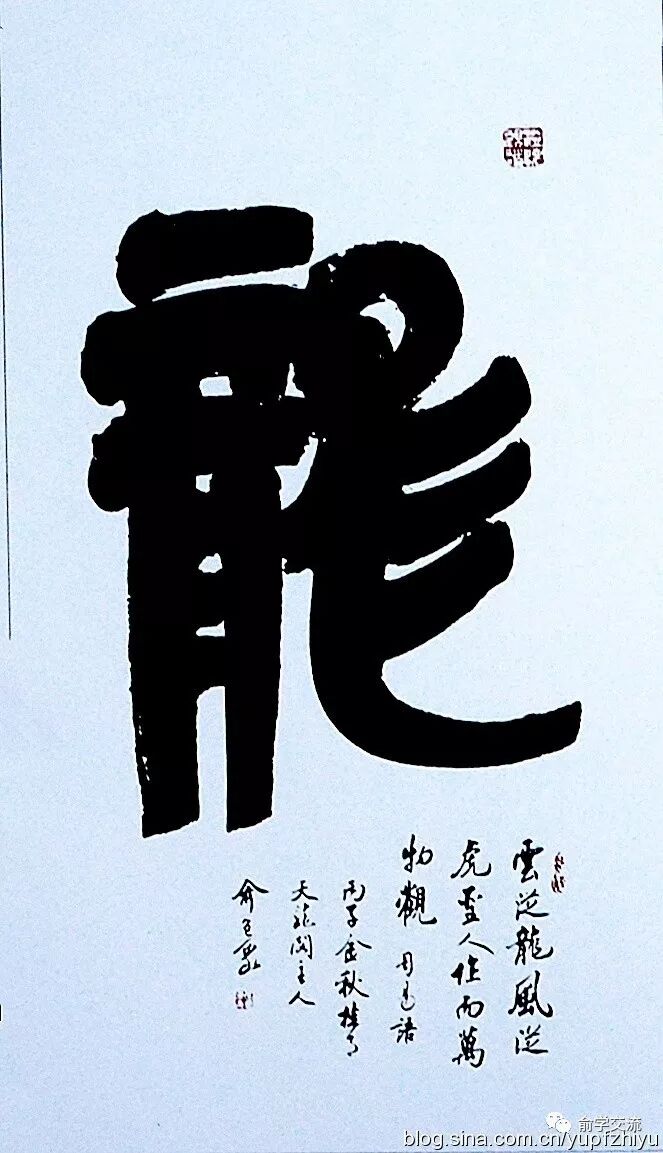 龍
雲從龍風從
虎聖人作而萬
物觀 周易語
丙子金秋桂月
天龍閣主人
俞學交流
blog.sina.com.cn/yupfzhiyu